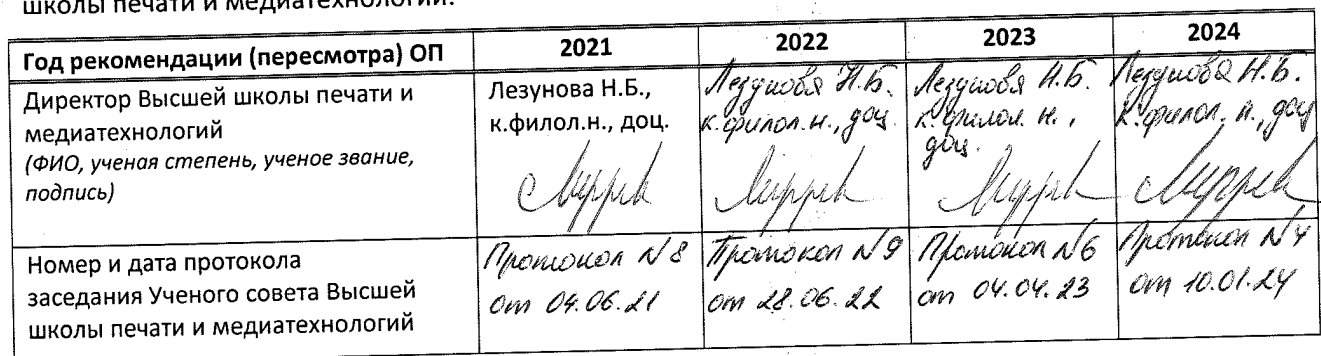 школы печати и медиатехнологий.
Год рекомендации (пересмотра) ОП 2021 2022 2023 2024
Директор Высшей школы печати и
медиатехнологий
(ФИО, ученая степень, ученое звание,
подпись)
Лезунова Н.Б.,
к.филол.н., доц.
Лезунова Н.Б.
к.филол.н., доц.
Лезунова Н.Б.
к.филол. н.,
доц.
Лезунова Н.Б.
к.филол. н., доц
Номер и дата протокола
заседания Ученого совета Высшей
школы печати и медиатехнологий
Протокол №8
от 04.06.21
Протокол №9
от 28.06.22
Протокол №6
от 04.04.23
Протокол №4
от 10.01.24